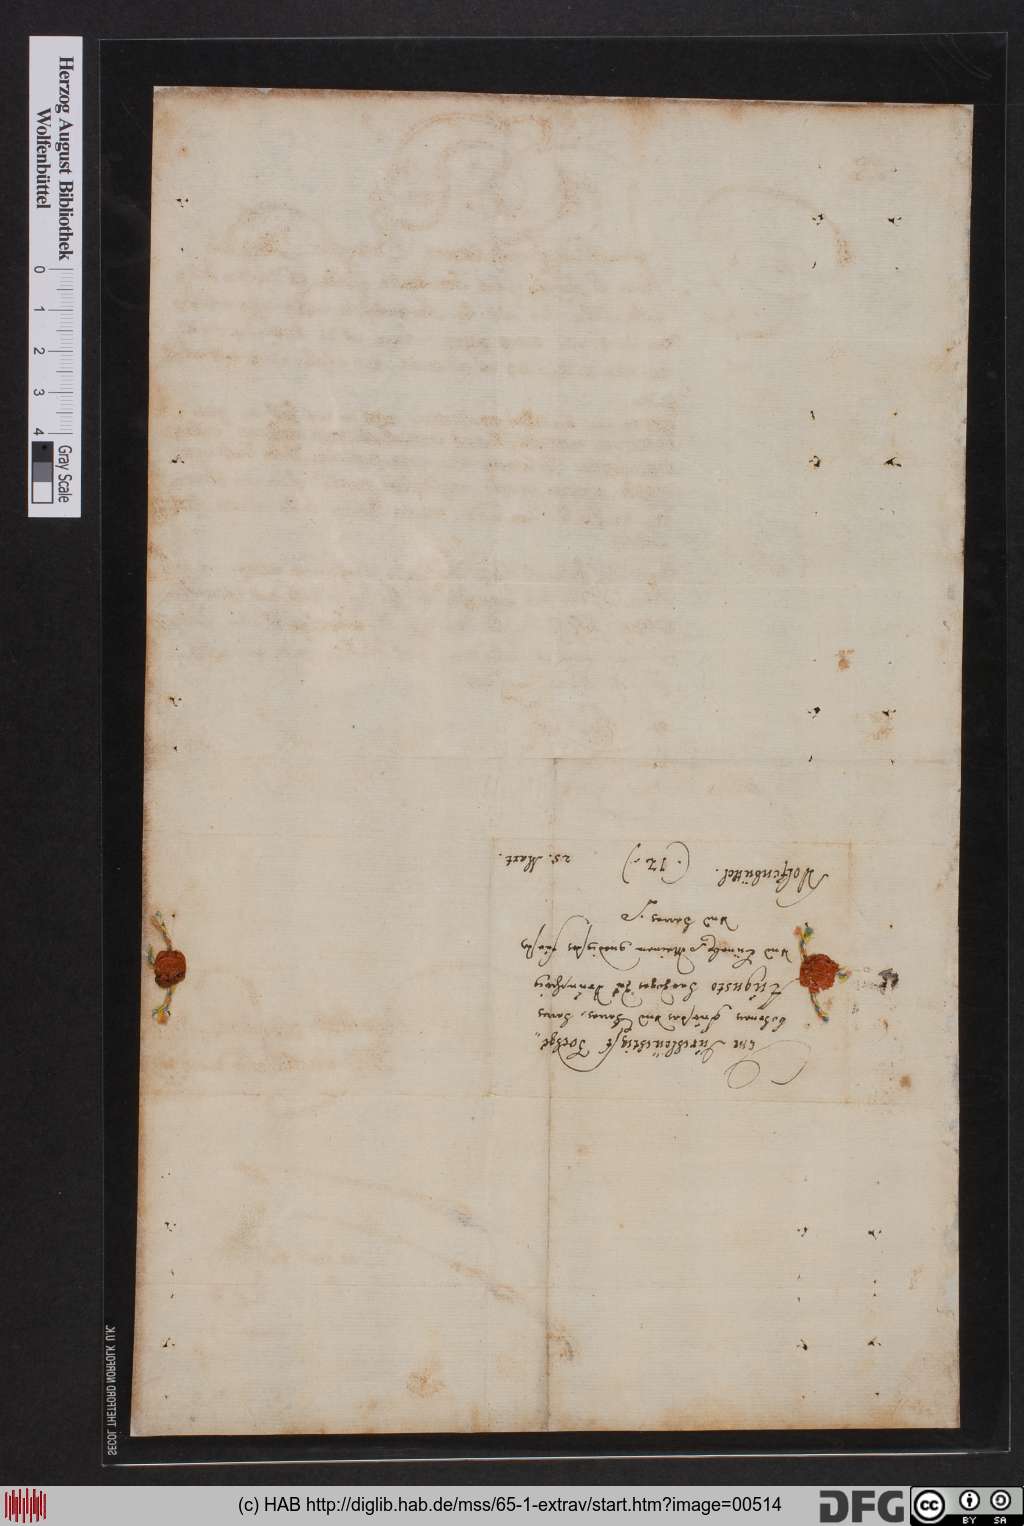 Herzog August Bibliothek
Wolfenbüttel
0 1 2 3 4
Gray Scale
Dem Durchleüchtigst Hochge-
bohrnen Fürsten und Herren, Herren
Augusto Herzogen zu Braunschweig
und Lünebg. Meinem gnedigsten Fürsten
und Herren.
Wolfenbüttel. (. 12 .) 25. Mart.
SECOL THETFORD NORFOLK U.K.
(c) HAB http://diglib.hab.de/mss/65-1-extrav/start.htm?image=00514
DFG
cc BY SA